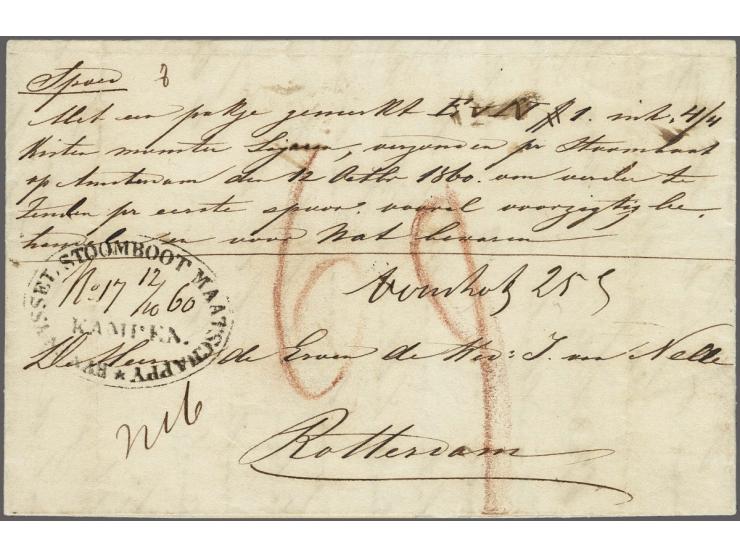 Spoed
Met een pakje gemerkt E v N # 1. inh. 4/4
Kisten monster Sigaren, verzonden pr Stoomboot
op Amsterdam den 12 Octbr 1860. om verder te
zenden pr eerste spoor. vooral voorzigtig be,
voor Nat bewaren
RYN YSSEL STOOMBOOT MAATSCHAPPY
No 17 12/10 60
KAMPEN.
69
25
De Heeren de Erven de Wed: J. van Nelle
Rotterdam